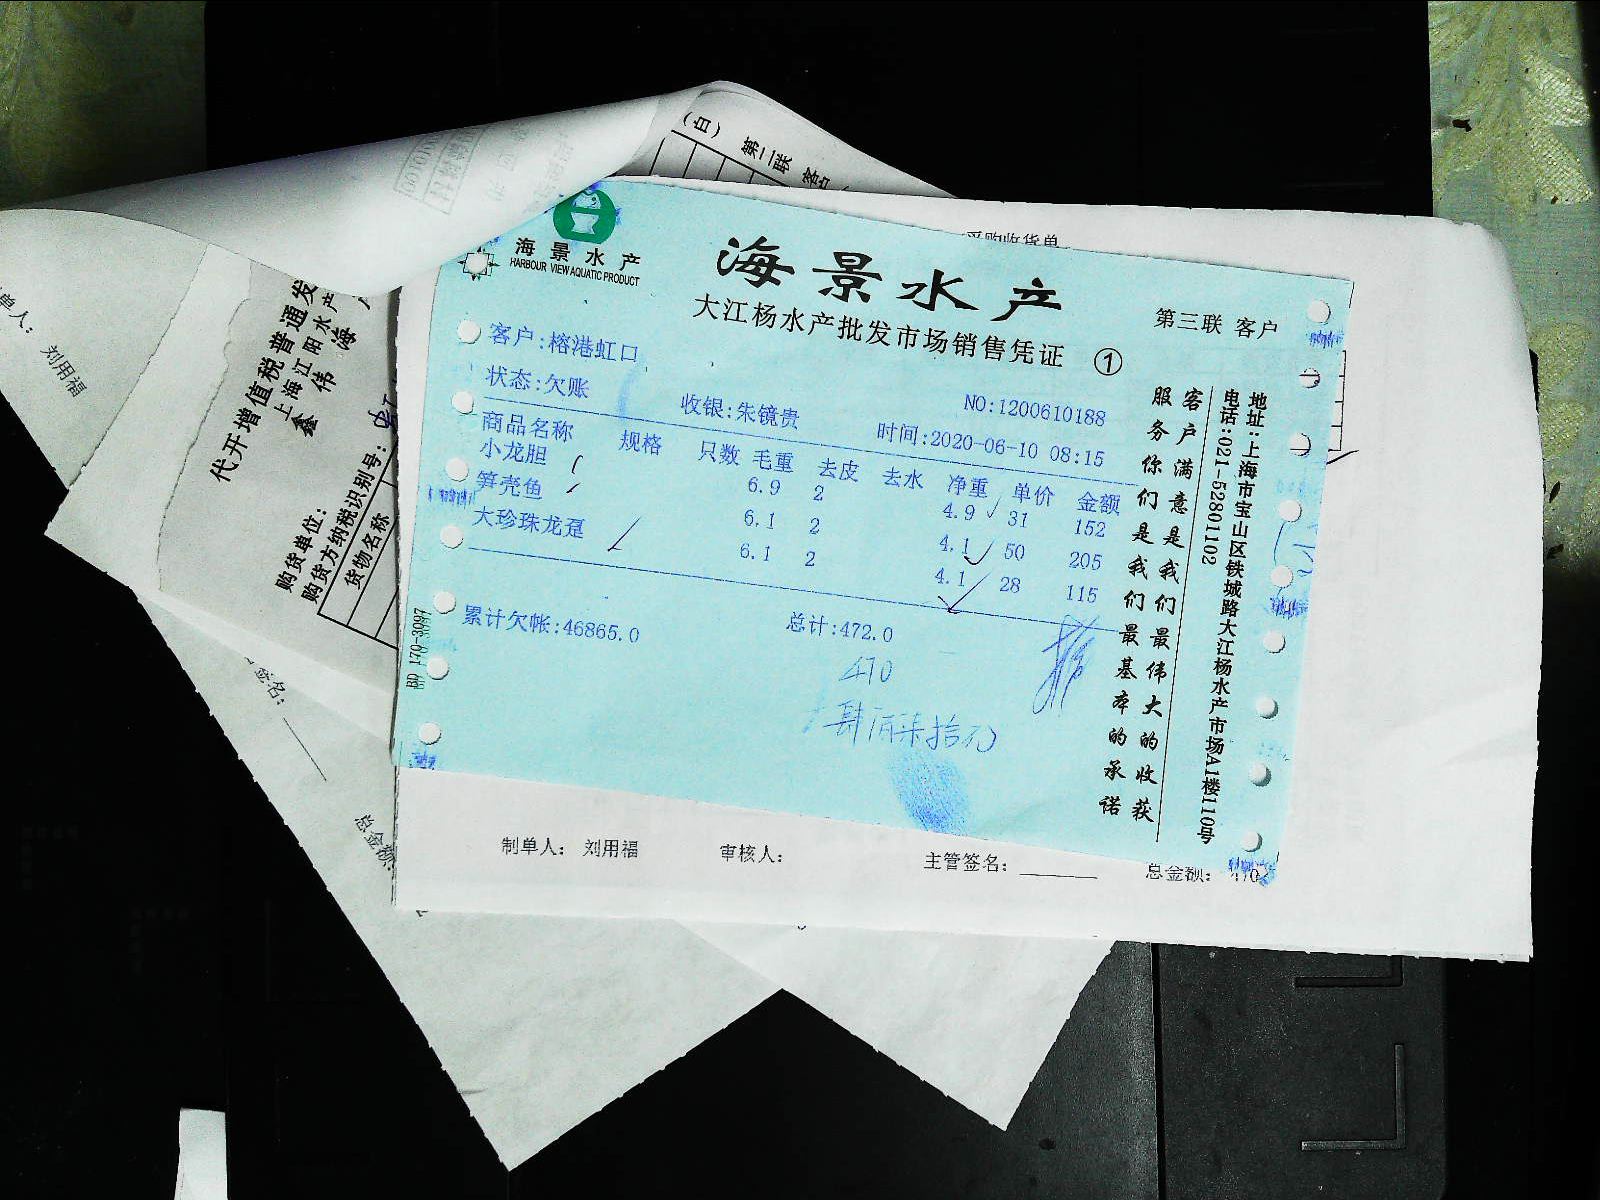 (白) 第二联 客
采购收货单
海景水产
HARBOUR VIEW AQUATIC PRODUCT
海景水产
大江杨水产批发市场销售凭证 ①
第三联 客户
客户:榕港虹口
状态:欠账
收银:朱镜贵
NO:1200610188
时间:2020-06-10 08:15
商品名称 规格 只数 毛重 去皮 去水 净重 单价 金额
小龙胆 6.9 2 4.9 31 152
笋壳鱼 6.1 2 4.1 50 205
大珍珠龙趸 6.1 2 4.1 28 115
累计欠帐:46865.0
总计:472.0
470
肆佰柒拾元
客户满意是我们最伟大的收获
服务你们是我们最基本的承诺
地址:上海市宝山区铁城路大江杨水产市场A1楼110号
电话:021-52801102
BD 170-3097
制单人: 刘用福
审核人:
主管签名:
总金额:
单人: 刘用福
代开增值税普通发
上海江阳水产
鑫伟海
购货单位:
购货方纳税识别号:
货物名称
签名:
总金额: